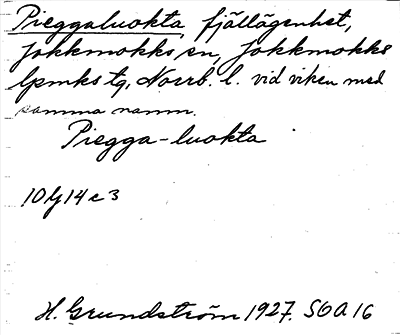 Pieggaluokta, fjällägenhet,
Jokkmokks sn, Jokkmokks
lpmks tg, Norrb. l. vid viken med
samma namn.
Piegga-luokta
10 14 c 3
H. Grundström 1927. SOA 16